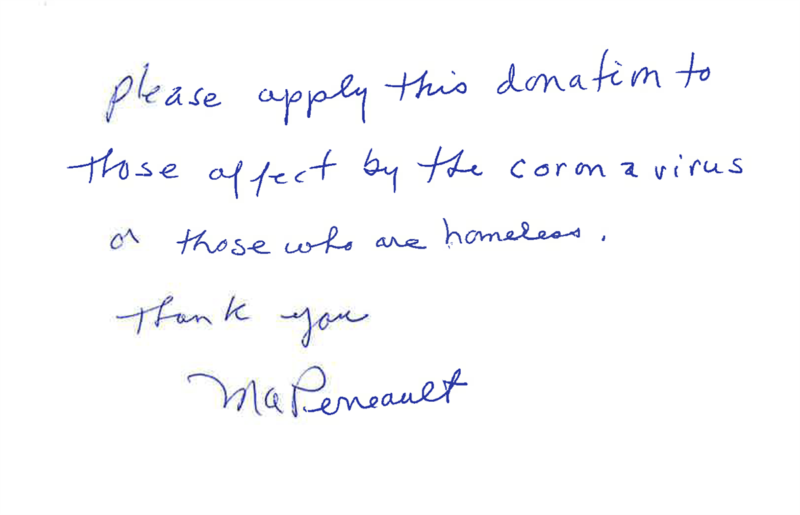 please apply this donation to
those affect by the coronavirus
or those who are homeless.
Thank you
MaPerneault